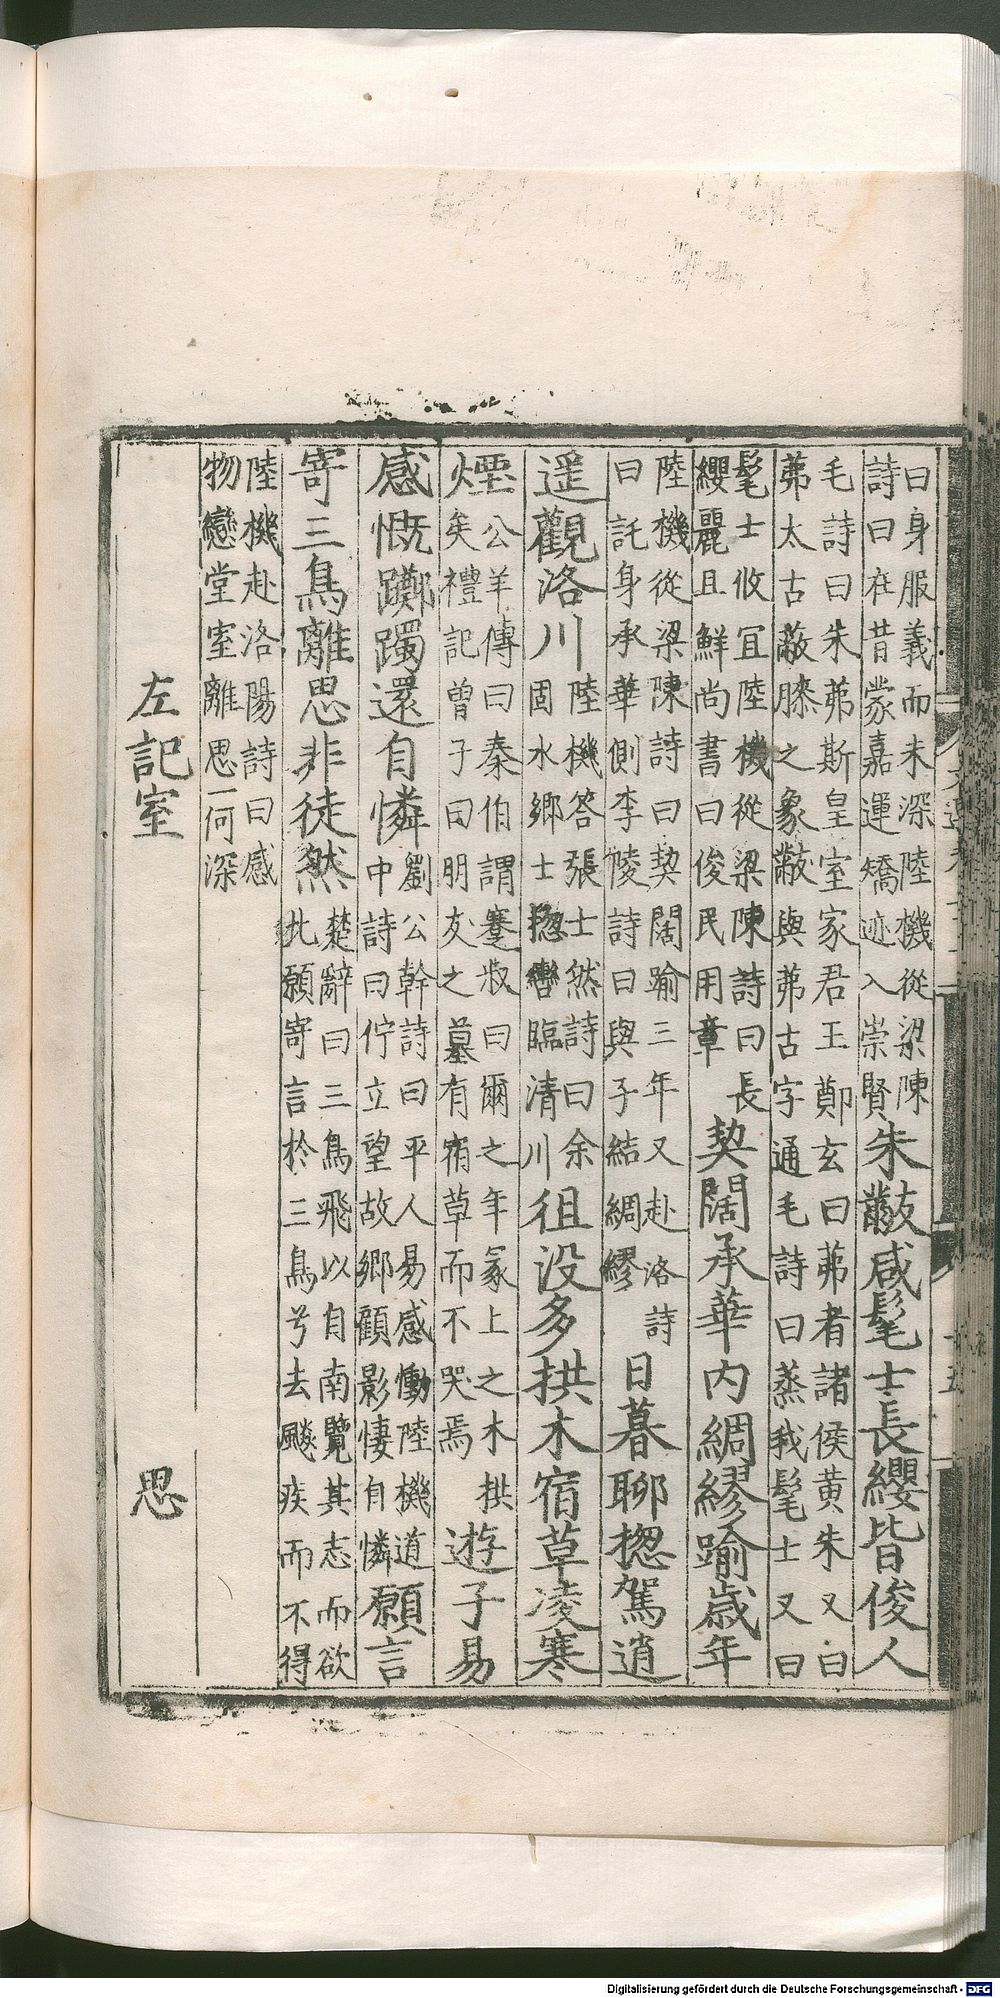 曰身服義而未深陸機從梁陳
詩曰在昔蒙嘉運矯迹入崇賢朱黻咸髦士長纓皆俊人
毛詩曰朱茀斯皇室家君王鄭玄曰茀者諸侯黃朱又曰
茀太古蔽膝之象黻與茀古字通毛詩曰蒸我髦士又曰
髦士攸宜陸機從梁陳詩曰長
纓麗且鮮尚書曰俊民用章契闊承華內綢繆踰歲年
陸機從梁陳詩曰契闊踰三年又赴洛詩
曰託身承華側李陵詩曰與子結綢繆日暮聊揔駕逍
遥觀洛川陸機答張士然詩曰余
固水鄉士揔轡臨清川徂没多拱木宿草凌寒
煙公羊傳曰秦伯謂蹇叔曰爾之年冢上之木拱
矣禮記曾子曰朋友之墓有宿草而不哭焉遊子易
感慨躑躅還自憐劉公幹詩曰平人易感慟陸機道
中詩曰佇立望故鄉顧影悽自憐願言
寄三鳥離思非徒然楚辭曰三鳥飛以自南覽其志而欲
北願寄言於三鳥兮去飈疾而不得
陸機赴洛陽詩曰感
物戀堂室離思一何深
左記室 思
Digitalisierung gefördert durch die Deutsche Forschungsgemeinschaft - DFG